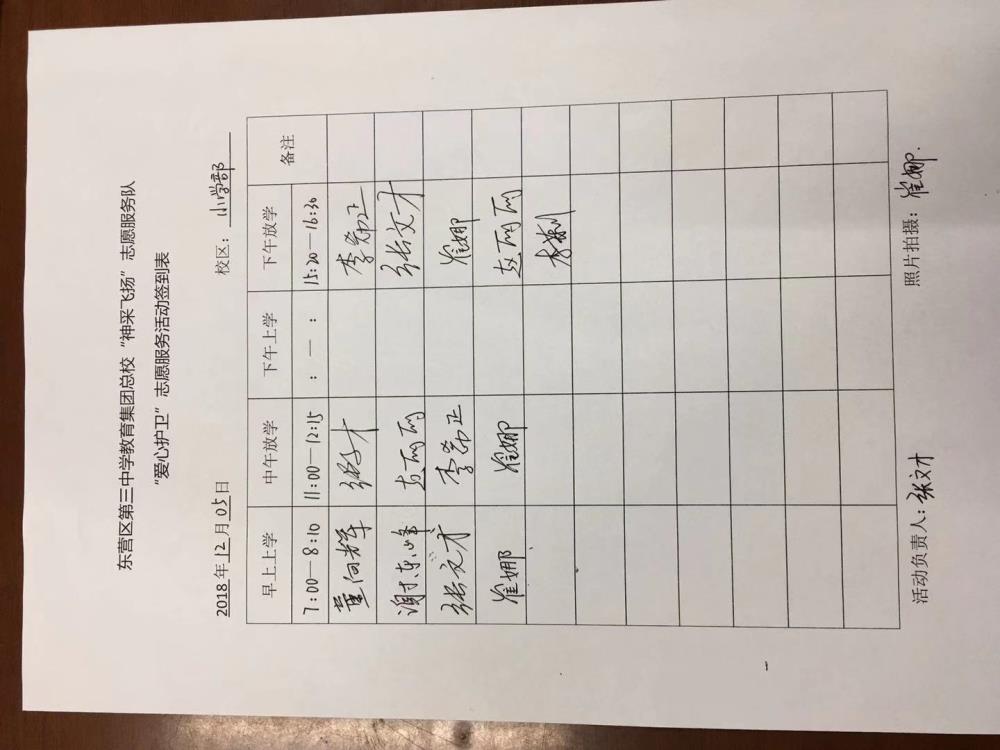 东营区第三中学教育集团总校“神采飞扬”志愿服务队
“爱心护卫”志愿服务活动签到表
2018年12月05日 校区：小学部
早上上学 中午放学 下午上学 下午放学 备注
7:00—8:10 11:00—12:15 : — : 15:20—16:30
董向辉 张文才 李希正
谢东峰 赵丽丽 张文才
张文才 李希正 崔娜
崔娜 崔娜 赵丽丽
活动负责人：张文才 照片拍摄：崔娜.